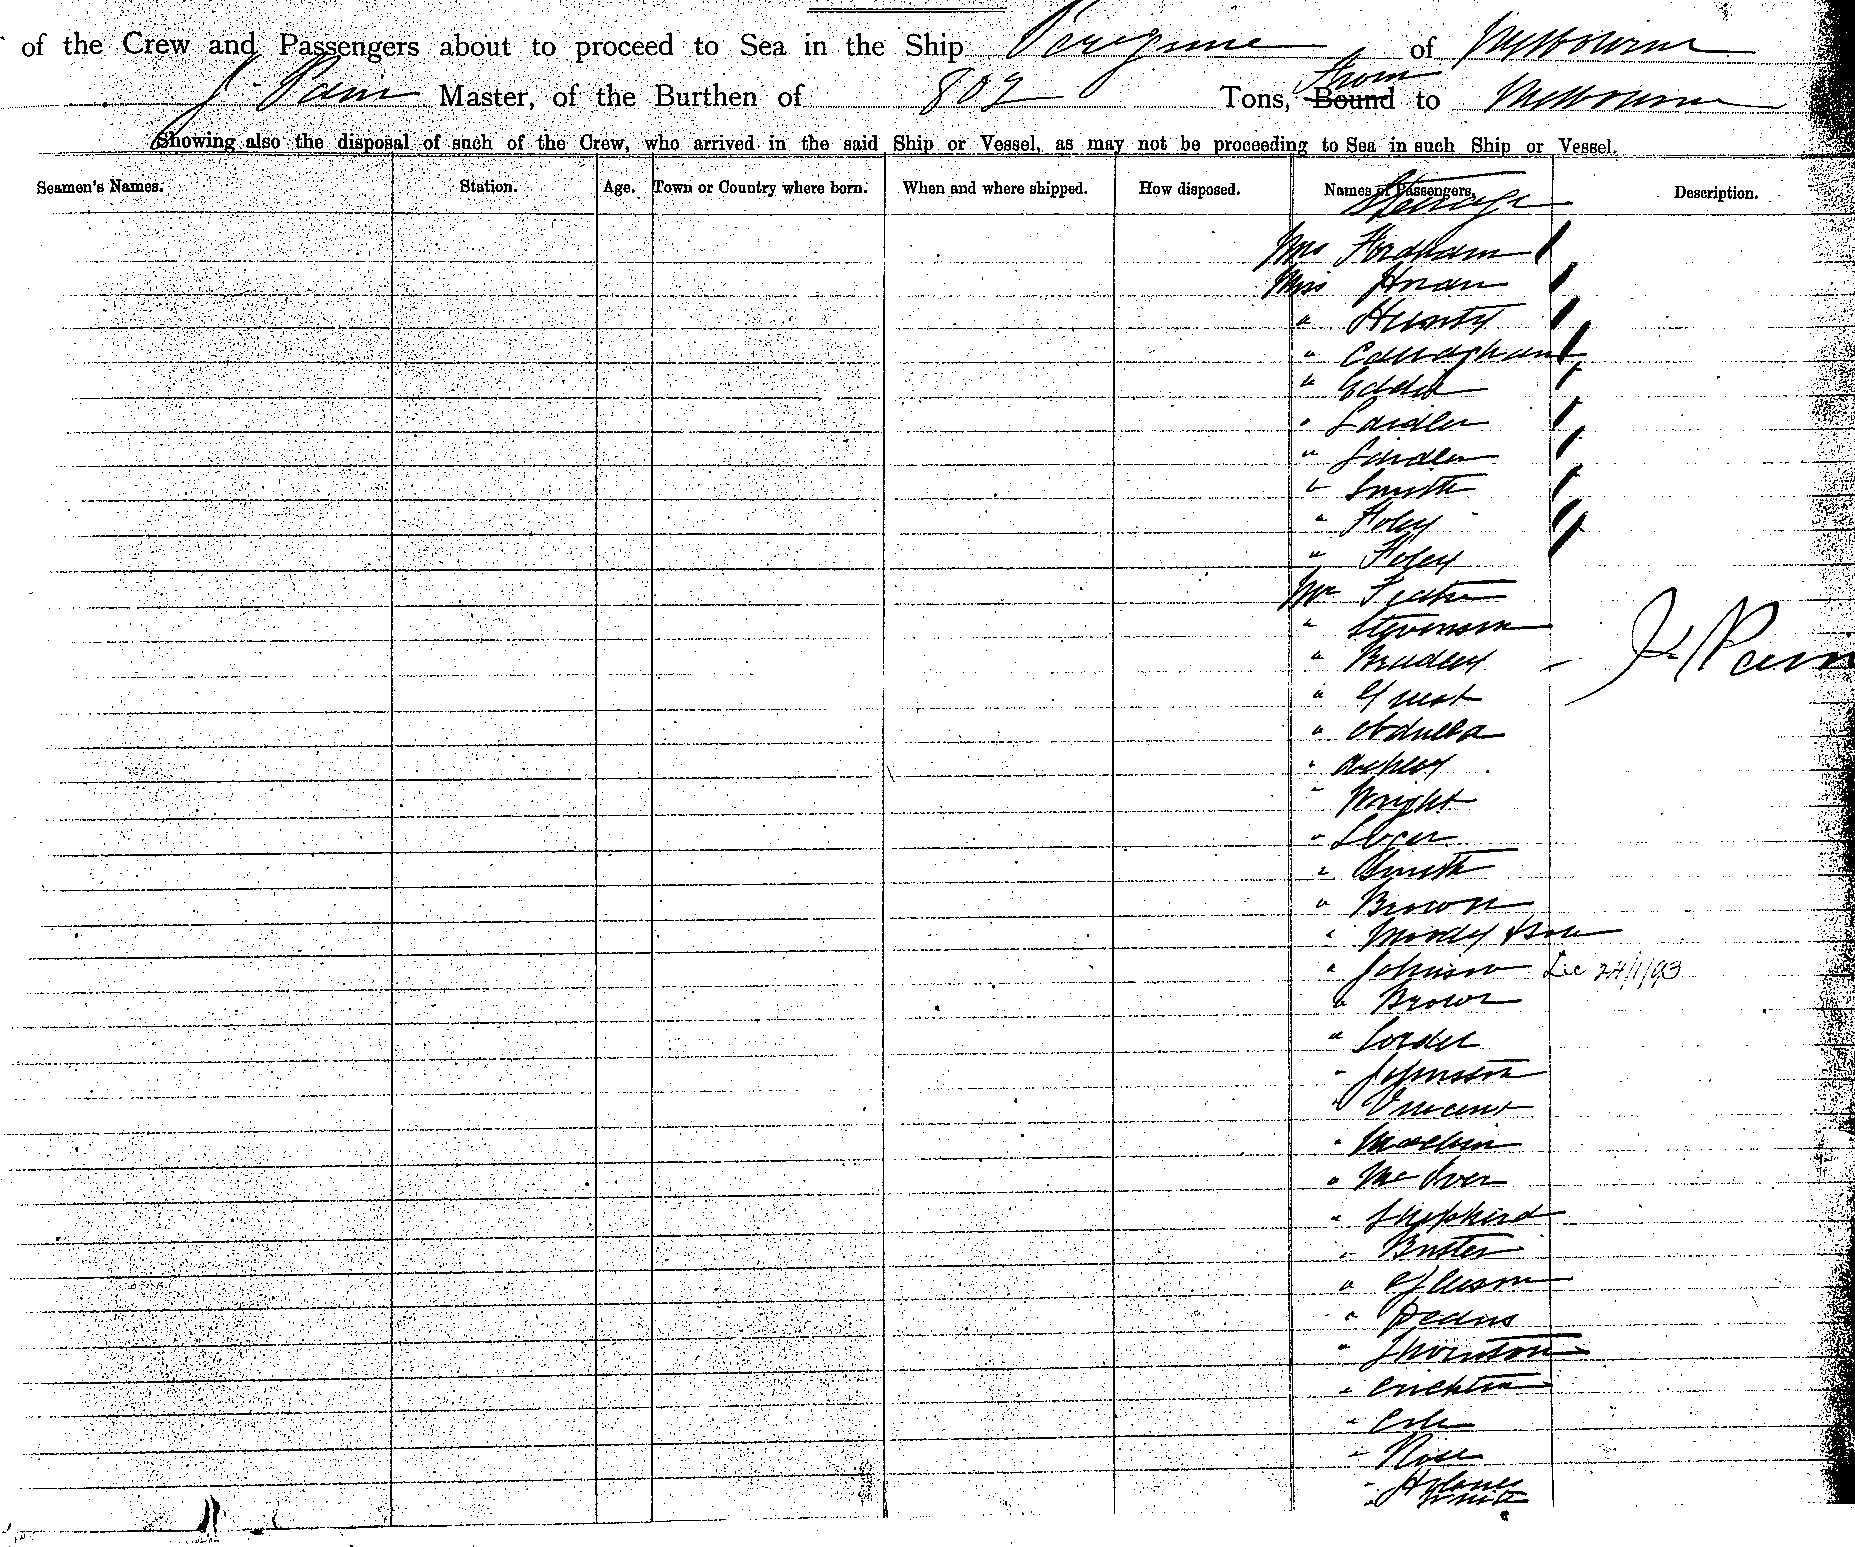 of the Crew and Passengers about to proceed to Sea in the Ship Peregrine of Melbourne
J. Pain Master, of the Burthen of 809 Tons, from Bound to Melbourne
Showing also the disposal of such of the Crew, who arrived in the said Ship or Vessel, as may not be proceeding to Sea in such Ship or Vessel.
Seamen's Names. Station. Age. Town or Country where born. When and where shipped. How disposed. Names of Passengers. Description.
Steerage
Mrs Fordham
Miss Horan
"
" Callaghan
" Eddie
" Laidler
" Laidler
" Smith
" Foley
" Foley
Mr
" Stevenson
" Bradley
J. Pain
"
" Abdulla
"
" Wright
"
" Smith
" Brown
" Moody & Son
" Johnson Lic 24/1/93
" Brown
"
" Johnston
" Vincent
" Machin
" McIver
" Shepherd
" Butler
" Gleeson
" Deans
" Thornton
"
" Cole
" Rose
"
" White